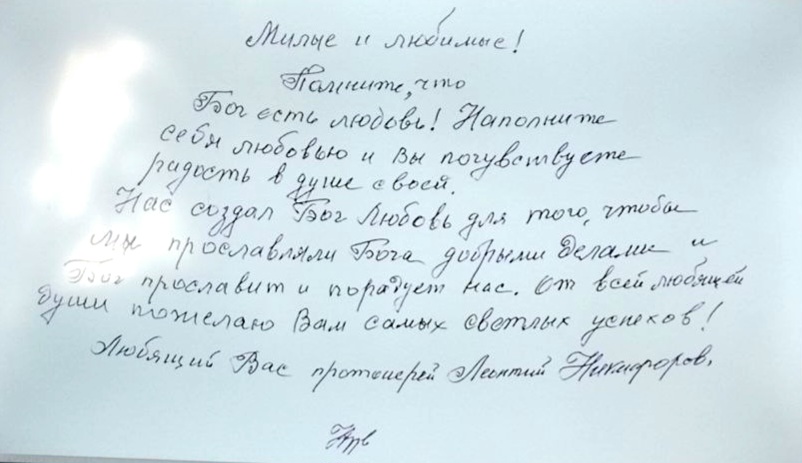 Милые и любимые!
Помните, что
Бог есть любовь! Наполните
себя любовью и Вы почувствуете
радость в душе своей.
Нас создал Бог Любовь для того, чтобы
мы прославляли Бога добрыми делами и
Бог прославит и порадует нас. От всей любящей
души пожелаю Вам самых светлых успехов!
Любящий Вас протоиерей Леонтий Никифоров.